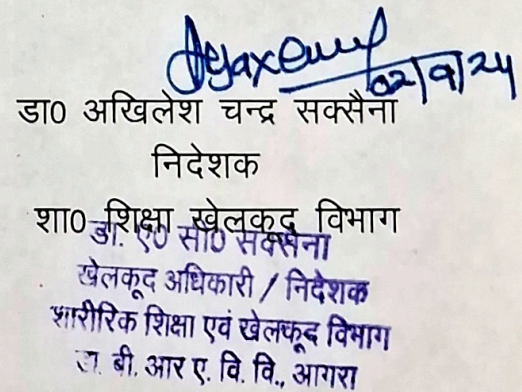 02/9/24
डा0 अखिलेश चन्द्र सक्सैना
निदेशक
शा0 शिक्षा खेलकूद विभाग
डा. ए0 सी0 सक्सेना
खेलकूद अधिकारी / निदेशक
शारीरिक शिक्षा एवं खेलकूद विभाग
बी. आर ए. वि. वि., आगरा